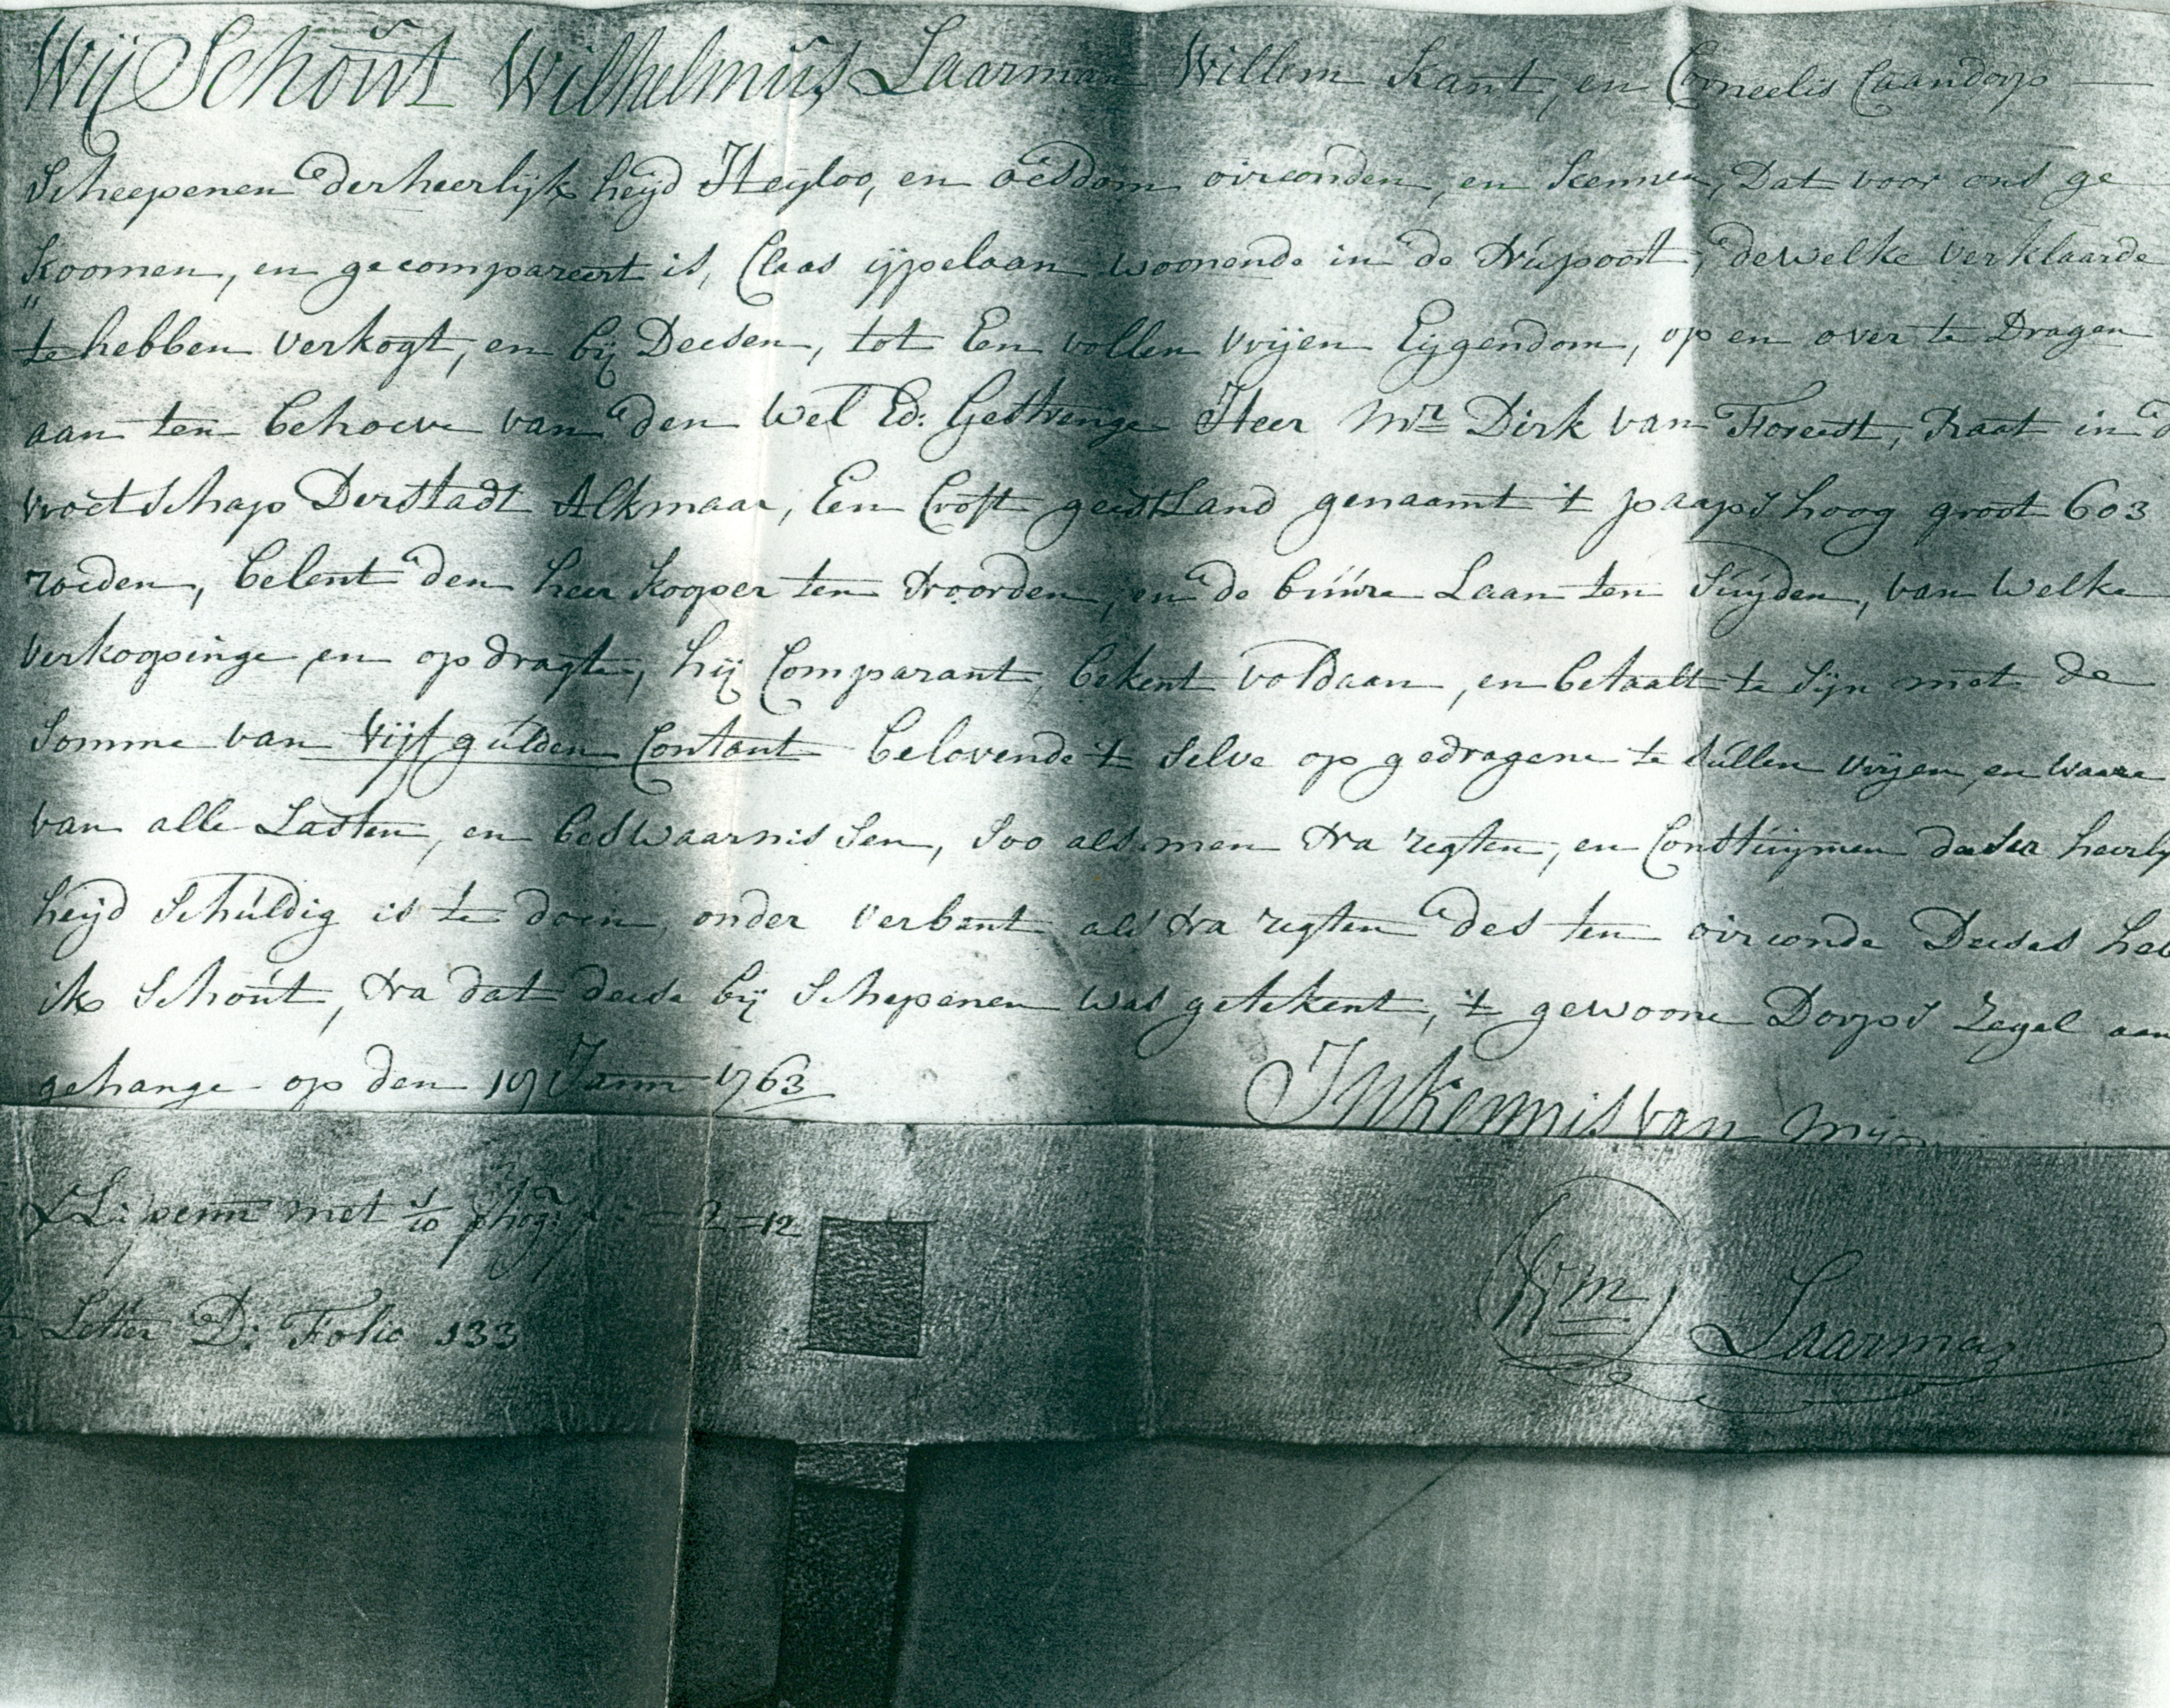 Wij Schout Wilhelmús Laarman Willem Kant, en Corneelis Caandorp
Scheepenen der heerlijk heijd Heyloo, en oesdom oirconden, en kennen, Dat voor ons ge
koomen, en gecompareert is, Claas ijpelaan woonende in de Núpoort, dewelke verklaarde
te hebben verkogt, en bij Deesen, tot Een vollen vrijen Eijgendom, op en over te Dragen
aan ten behoeve van den Wel Ed: Gestrenge Heer Mr Dirk van Foreest, Raat in d
vroetschap Der stadt Alkmaar, Een Croft geestLand genaamt 't paaps hoog groot 603
roeden, belent den heer kooper ten Noorden, en de búúre Laan ten Súijden, van welke
verkoopinge en opdragte, hij Comparant, bekent voldaan, en betaalt te sijn met de
Somme van Vijf gúlden Contant belovende 't selve op gedragene te súllen vrijen, en waare
van alle Lasten, en beswaarnissen, soo als men Na regten, en Constúijmen deeser heerly
heijd schúldig is te doen, onder verbant als Na regten des ten oirconde Deeses heb
ik Schoút, Na dat deese bij Schepenen was getekent, 't gewoone Dorps Zegel aan
gehange op den 19 Janr 1763
In kennis van Mijn
penn met 1/10 2 = 12
Letter D: Folio 133
Wm Laarman